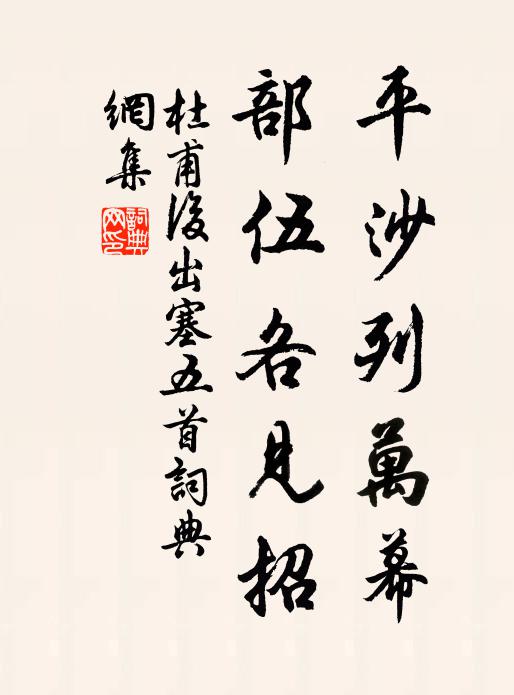 平沙列萬幕
部伍各見招
杜甫後出塞五首詞典
網集
詞典網印